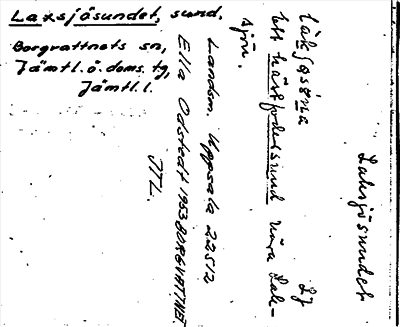 Laxsjösundet, sund,
Borgvattnets sn,
Jämtl.ö.doms.tg,
Jämtl.l.
Laxsjösundet
Lj
ett hästfodersund nära Lak-
sjön.
Landsm. Uppsala 22512
Ella Odstedt 1953 BORGVATTNET.
JTL.